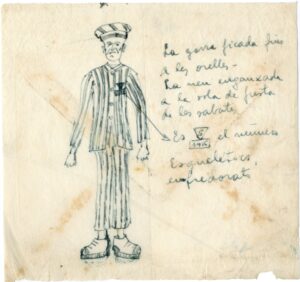 La gorra ficada fins
a les orelles -
La neu enganxada
a la sola de fusta
de les sabates
Es el número
Esquelètics,
enfredorats